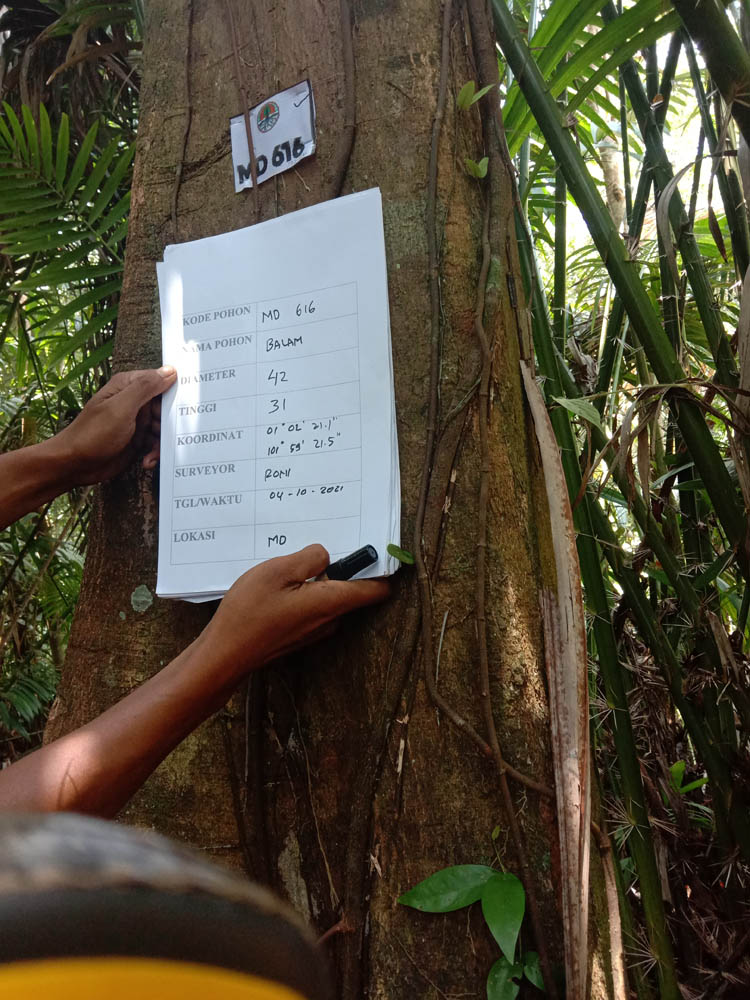 MD 616
KODE POHON MD 616
NAMA POHON BALAM
DIAMETER 42
TINGGI 31
KOORDINAT 01° 02' 21.1"
101° 59' 21.5"
SURVEYOR RONI
TGL/WAKTU 04-10-2021
LOKASI MD